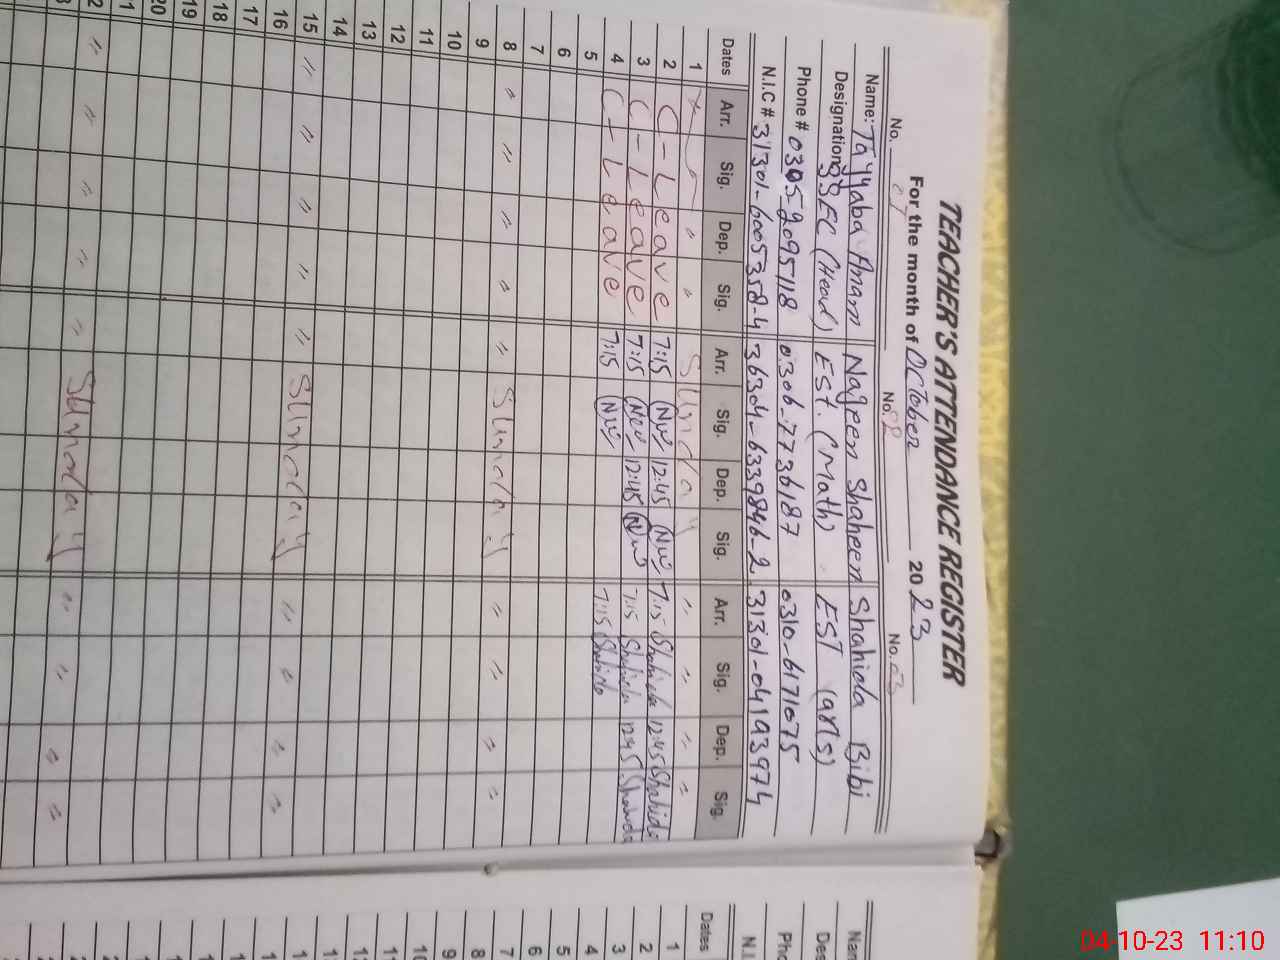 TEACHER'S ATTENDANCE REGISTER
For the month of October 2023
No. 01 No. 02 No. 03
Name: Tayyaba Anam Nageen Shaheen Shahida Bibi
Designation SSEC (Head) EST. (Math) EST (arts)
Phone # 0305-2095118 0306-7736187 0310-6171075
N.I.C # 31301-6005358-4 36304-6339846-2 31301-04193974
Dates Arr. Sig. Dep. Sig. Arr. Sig. Dep. Sig. Arr. Sig. Dep. Sig.
1 " " Sunday " " " "
2 C-Leave 7:15 12:45 7:15 Shahida 12:45 Shahida
3 C-Leave 7:15 12:45 7:15 Shahida 12:45 Shahida
4 C-Leave 7:15 7:15 Shahida
5
6
7
8 " " " " " Sunday " " " "
9
10
11
12
13
14
15 " " " " " Sunday " " " "
16
17
18
19
20
" " " " " Sunday " " " "
Dates
1
2
3
4
5
6
7
8
9
10
04-10-23 11:10